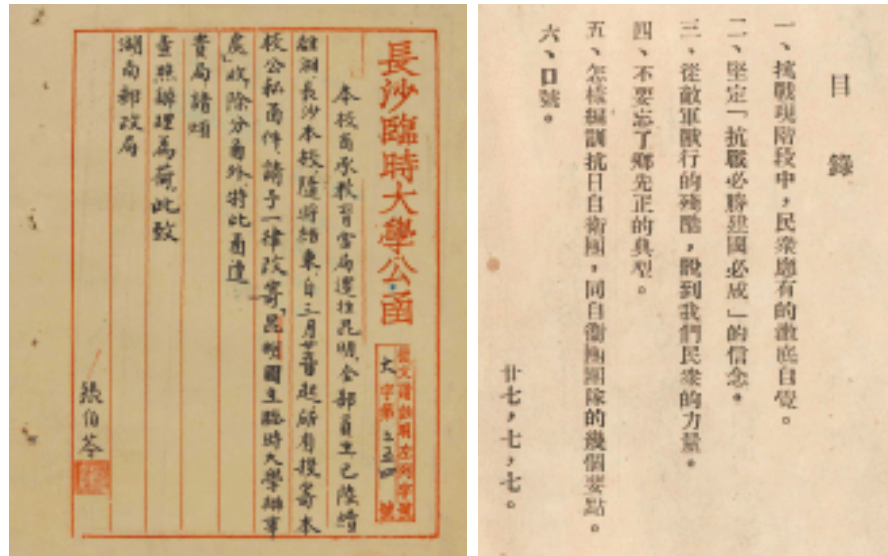 長沙臨時大學公函
發文請註明左列字號
大字第 二五四 號
本校前承教育當局遷往昆明,全部員生已陸續
離湘,長沙本校,隨將結束,自三月廿 起所有投寄本
校公私函件,請予一律改寄「昆明國立臨時大學辦事
處」收,除分函外,特此函達
貴局請煩
查照辦理為荷,此致
湖南郵政局
張伯苓
目錄
一、抗戰現階段中,民衆應有的澈底自覺。
二、堅定「抗戰必勝建國必成」的信念。
三、從敵軍獸行的殘酷,說到我們民衆的力量。
四、不要忘了鄉先正的典型。
五、怎樣編訓抗日自衛團,同自衛團團隊的幾個要點。
六、口號。
廿七,七,七。